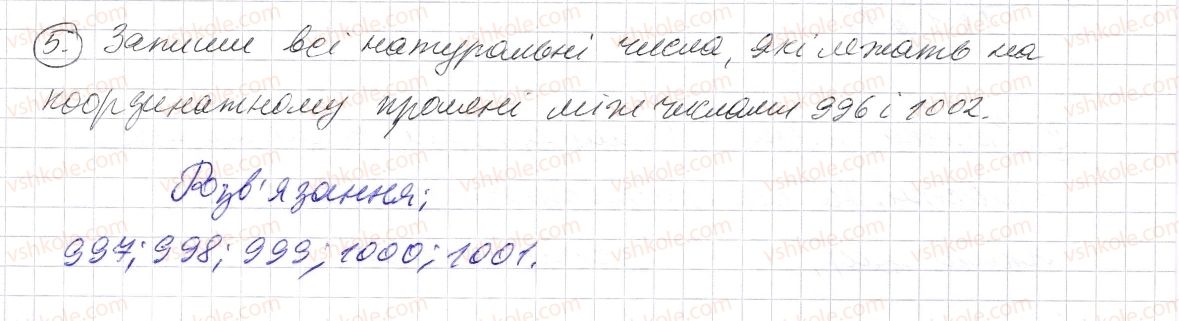 5. Запиши всі натуральні числа, які лежать на
координатному промені між числами 996 і 1002.
Розв'язання;
997; 998; 999; 1000; 1001.